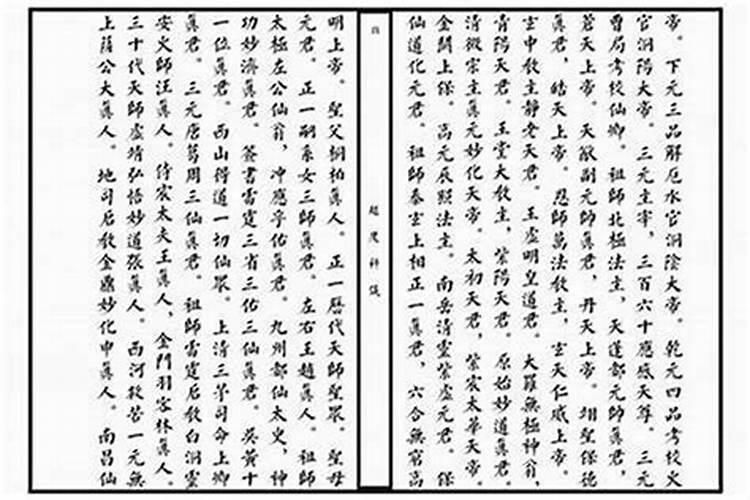 帝。下元三品解厄水官洞陰大帝。乾元四品考校火
官洞陽大帝。三元主宰,三百六十應感天尊。三元
曹局考校仙卿。祖師北極法主,天蓬都元帥眞君,
蒼天上帝。天猷副元帥眞君,丹天上帝。翊聖保德
眞君,皓天上帝。恩師萬法教主,玄天仁威上帝。
玄中教主靜老天君。玉虛明皇道君。大羅無極神翁,
青陽天君。玉堂大教主,紫陽天君。原始妙道眞君。
清微宗主眞元妙化天帝。太初天君,紫宸太華天帝。
金闕上保。高元辰照法主。南岳清靈紫虛元君。保
仙道化元君。祖師泰玄上相正一眞君,六合無窮高
超度科儀
明上帝。聖父桐柏眞人。正一曆代天師聖眾。聖母
元君。正一嗣系女三師眞君。左右王趙眞人。祖師
太極左公仙翁,冲應孚佑眞君。九州都仙太史,神
功妙濟眞君。簽書雷霆三省三佑三仙眞君。吳黃十
一位眞君。西山得道一切仙眾。上清三茅司命上卿
眞君。三元唐葛周三仙眞君。祖師雷霆启教白洞靈
安火師汪眞人。侍宸太夫王眞人,金門羽客林眞人。
三十代天師虛靖弘悟妙道張眞人。西河救苦一元無
上薩公大眞人。地司启教金鼎妙化申眞人。南昌仙